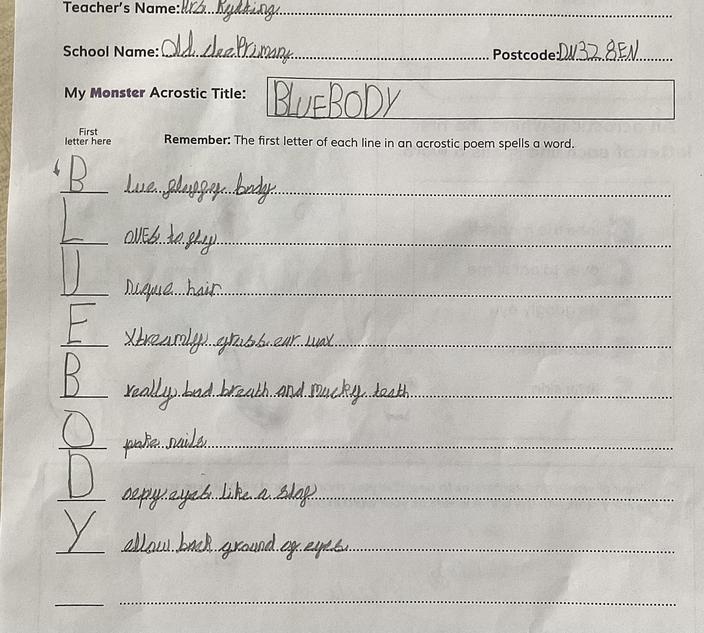 Teacher's Name: Mrs
School Name: Old Clee Primary Postcode: DN32 8EN
My Monster Acrostic Title: BLUEBODY
First
letter here
Remember: The first letter of each line in an acrostic poem spells a word.
B lue body
L OVES to play
U nique hair
E Xtreamly ear wax
B really bad breath and mucky teath
O nails
D eyes like a slug
Y ellow back ground of eyes